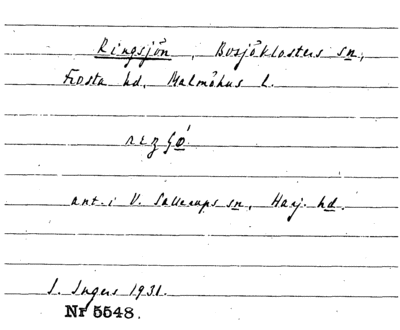 Ringsjön, Bosjöklosters sn,
Frosta hd, Malmöhus l.
ant. i V. Sallerups sn, Harj. hd.
I. Ingers 1931.
Nr 5548.